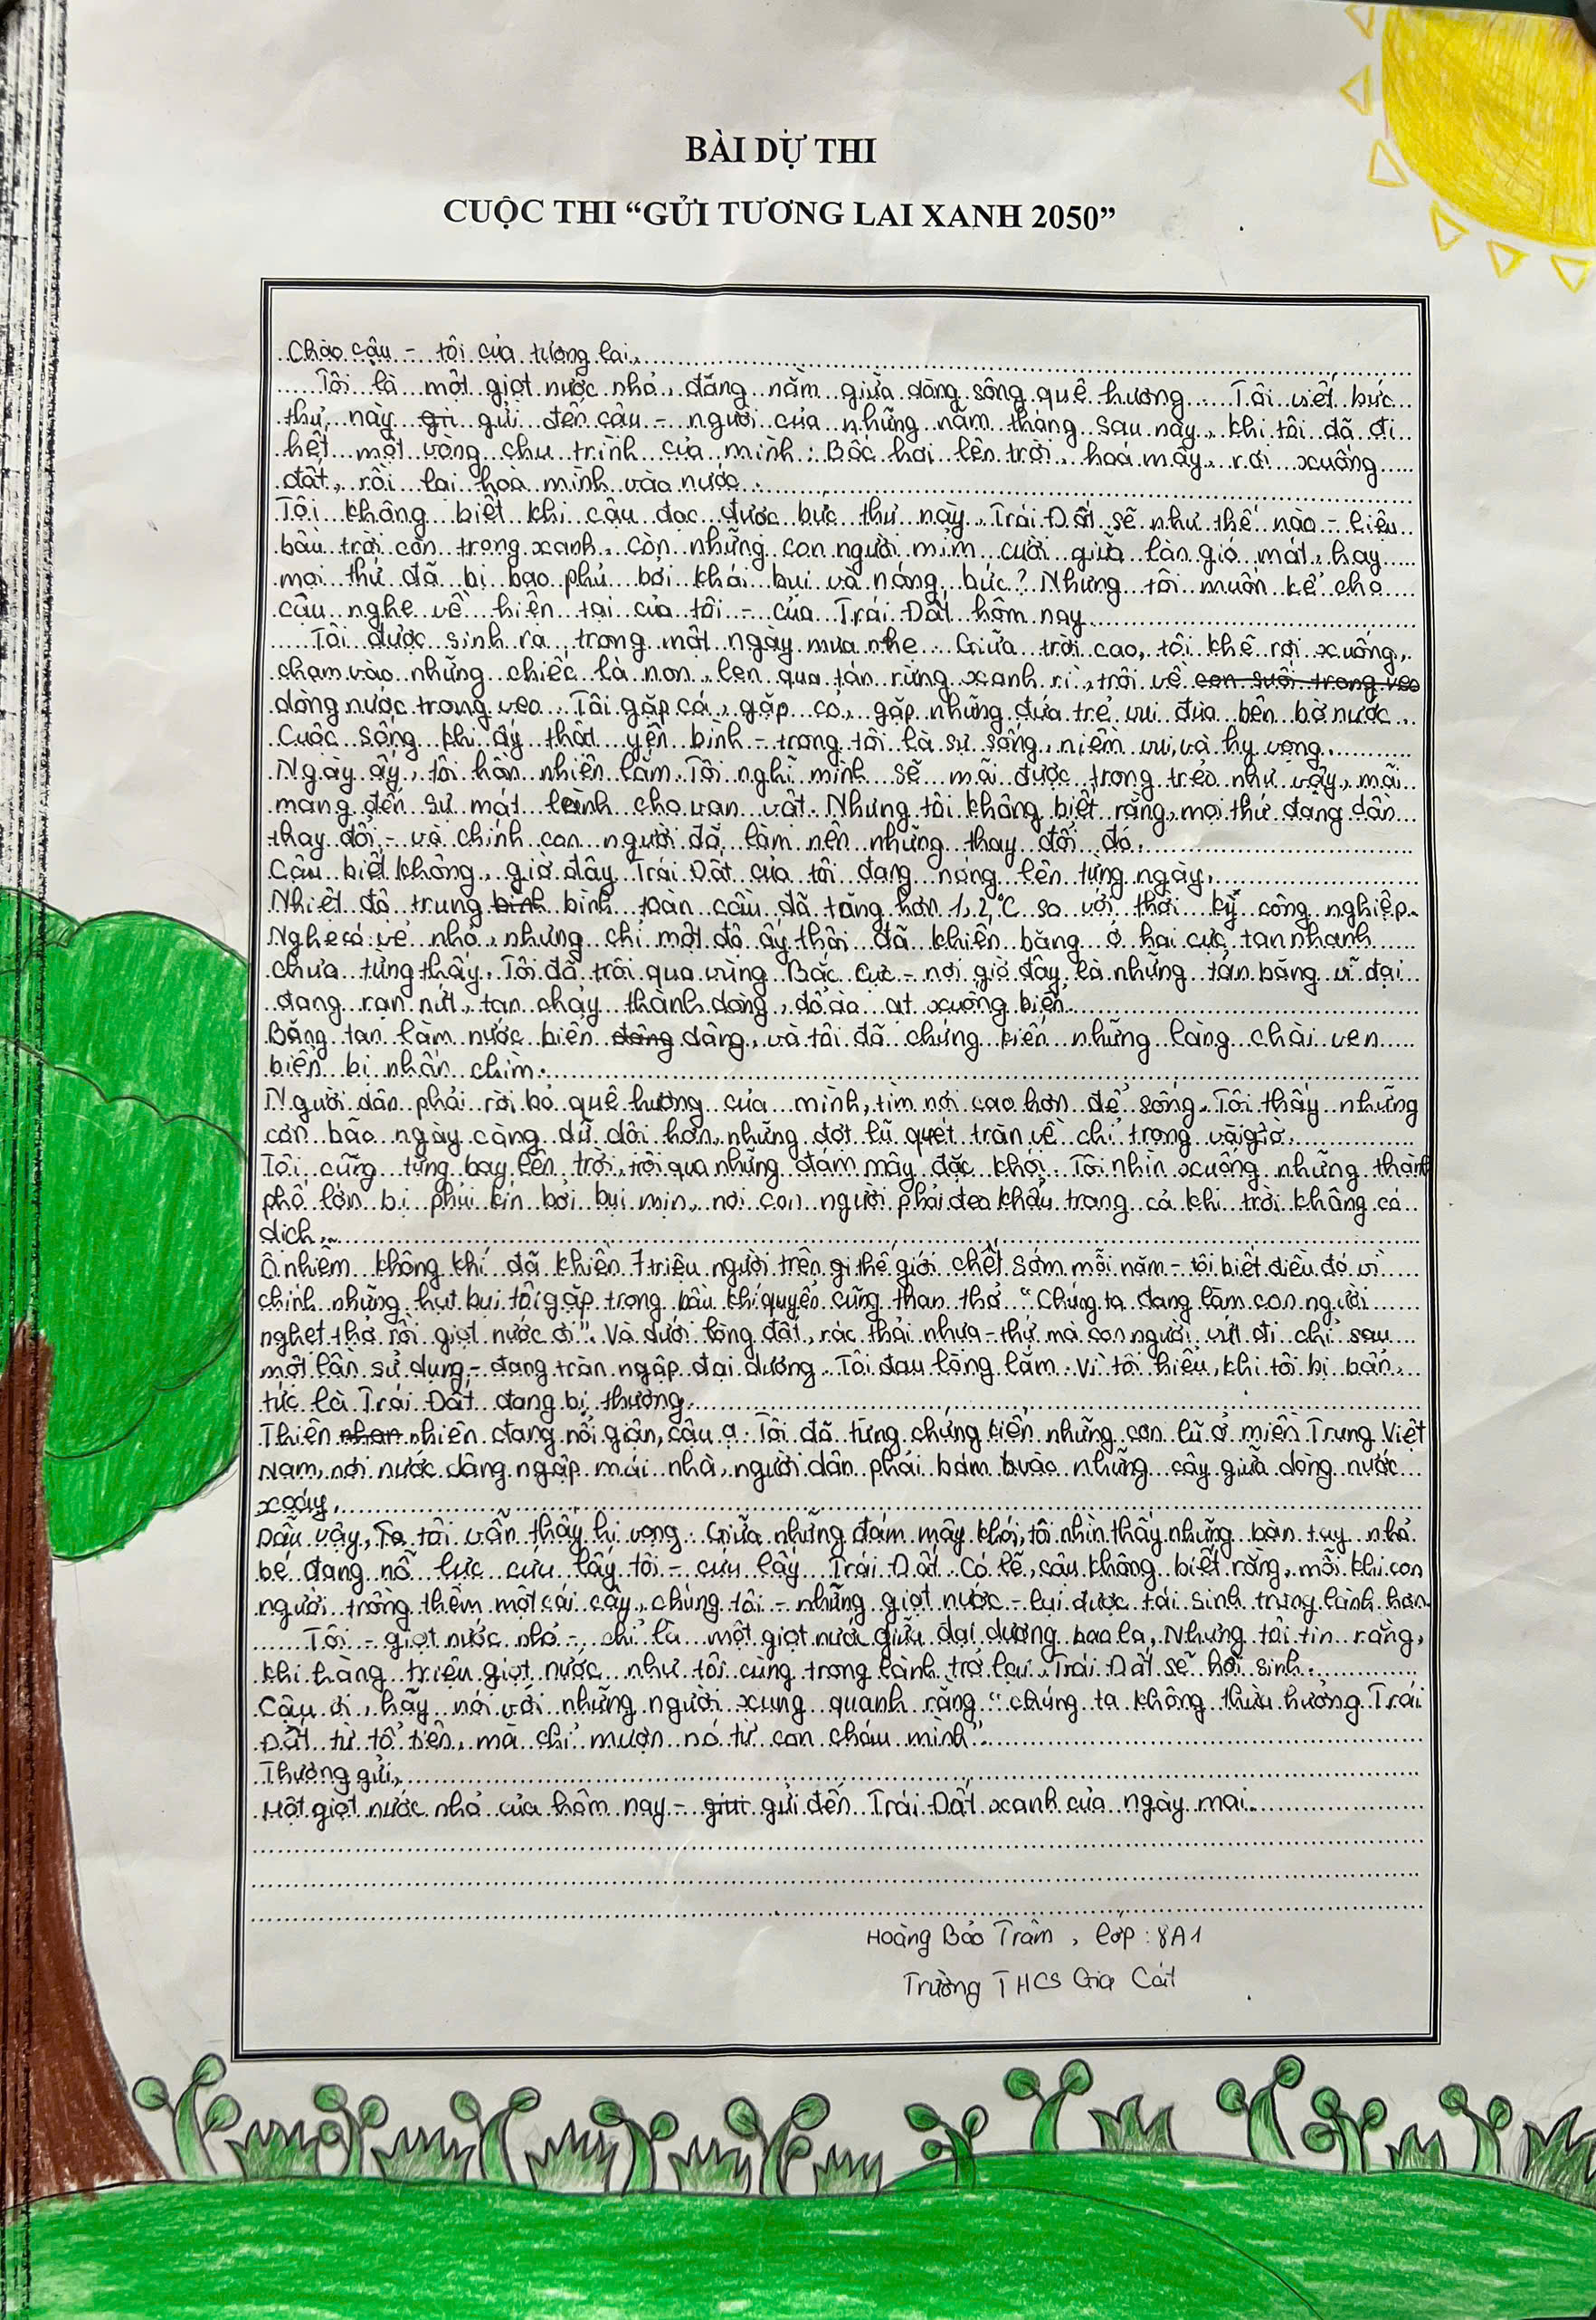 BÀI DỰ THI
CUỘC THI “GỬI TƯƠNG LAI XANH 2050”
Chào cậu - tôi của tương lai,
Tôi là một giọt nước nhỏ, đang nằm giữa dòng sông quê hương. Tôi viết bức
thư này gửi đến cậu - người của những năm tháng sau này, khi tôi đã đi
hết một vòng chu trình của mình: Bốc hơi lên trời, hoá mây, rơi xuống
đất, rồi lại hoà mình vào nước.
Tôi không biết khi cậu đọc được bức thư này, Trái Đất sẽ như thế nào - liệu
bầu trời còn trong xanh, còn những con người mỉm cười giữa làn gió mát, hay
mọi thứ đã bị bao phủ bởi khói bụi và nóng bức? Nhưng tôi muốn kể cho
cậu nghe về hiện tại của tôi - của Trái Đất hôm nay.
Tôi được sinh ra trong một ngày mưa nhẹ. Giữa trời cao, tôi khẽ rơi xuống,
chạm vào những chiếc lá non, len qua tán rừng xanh rì, trôi về con suối trong veo
dòng nước trong veo. Tôi gặp cá, gặp cỏ, gặp những đứa trẻ vui đùa bên bờ nước.
Cuộc sống khi ấy thật yên bình - trong tôi là sự sống, niềm vui, và hy vọng.
Ngày ấy, tôi hồn nhiên lắm. Tôi nghĩ mình sẽ mãi được trong trẻo như vậy, mãi
mang đến sự mát lành cho vạn vật. Nhưng tôi không biết rằng, mọi thứ đang dần
thay đổi - và chính con người đã làm nên những thay đổi đó.
Cậu biết không, giờ đây Trái Đất của tôi đang nóng lên từng ngày.
Nhiệt độ trung binh bình toàn cầu đã tăng hơn 1,2°C so với thời kỳ công nghiệp.
Nghe có vẻ nhỏ, nhưng chỉ một độ ấy thôi đã khiến băng ở hai cực tan nhanh
chưa từng thấy. Tôi đã trôi qua vùng Bắc Cực - nơi giờ đây là những tản băng vĩ đại
đang rạn nứt, tan chảy thành dòng, đổ ào ạt xuống biển.
Băng tan làm nước biển đâng dâng, và tôi đã chứng kiến những làng chài ven
biển bị nhấn chìm.
Người dân phải rời bỏ quê hương của mình, tìm nơi cao hơn để sống. Tôi thấy những
cơn bão ngày càng dữ dội hơn, những đợt lũ quét tràn về chỉ trong vài giờ.
Tôi cũng từng bay lên trời, trôi qua những đám mây đặc khói. Tôi nhìn xuống những thành
phố lớn bị phủi kín bởi bụi mịn, nơi con người phải đeo khẩu trang cả khi trời không có
dịch.
Ô nhiễm không khí đã khiến 7 triệu người trên gi thế giới chết sớm mỗi năm - tôi biết điều đó vì
chính những hạt bụi tôi gặp trong bầu khí quyển cũng than thở “Chúng ta đang làm con người
nghẹt thở rồi giọt nước ơi”. Và dưới lòng đất, rác thải nhựa - thứ mà con người vứt đi chỉ sau
một lần sử dụng - đang tràn ngập đại dương. Tôi đau lòng lắm. Vì tôi hiểu, khi tôi bị bẩn,
tức là Trái Đất đang bị thương.
Thiên nhan nhiên đang nổi giận, cậu ạ. Tôi đã từng chứng kiến những cơn lũ ở miền Trung Việt
Nam, nơi nước dâng ngập mái nhà, người dân phải bám vào những cây giữa dòng nước
xoáy.
Dẫu vậy, tôi vẫn thấy hi vọng. Giữa những đám mây khói, tôi nhìn thấy những bàn tay nhỏ
bé đang nỗ lực cứu lấy tôi - cứu lấy Trái Đất. Có lẽ, cậu không biết rằng, mỗi khi con
người trồng thêm một cái cây, chúng tôi - những giọt nước - lại được tái sinh trong lành hơn.
Tôi - giọt nước nhỏ - chỉ là một giọt nước giữa đại dương bao la, Nhưng tôi tin rằng,
khi hàng triệu giọt nước như tôi cùng trong lành trở lại, Trái Đất sẽ hồi sinh.
Cậu ơi, hãy nói với những người xung quanh rằng “chúng ta không thừa hưởng Trái
Đất từ tổ tiên, mà chỉ mượn nó từ con cháu mình”.
Thương gửi,
Một giọt nước nhỏ của hôm nay - giưi gửi đến Trái Đất xanh của ngày mai.
Hoàng Bảo Trâm, lớp: 8A1
Trường THCS Gia Cát